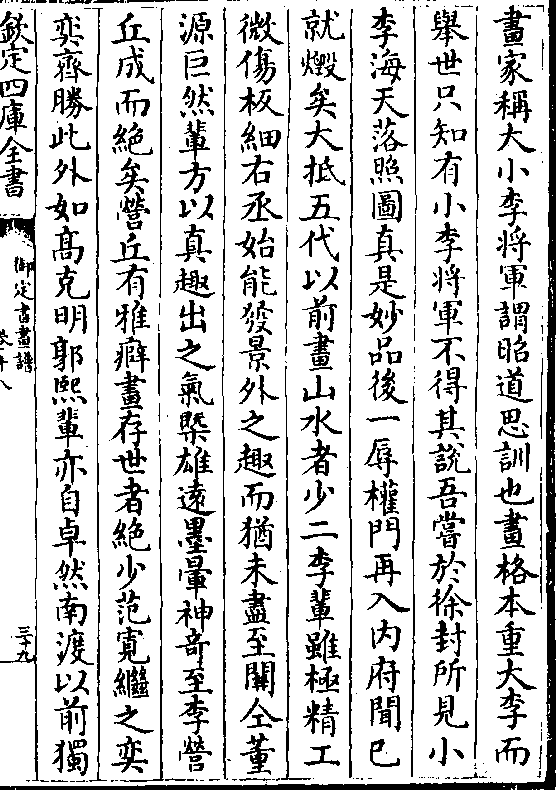 畫家稱大小李將軍謂昭道思訓也畫格本重大李而
舉世只知有小李將軍不得其說吾嘗於徐封所見小
李海天落照圖真是妙品後一辱權門再入内府聞已
就燬矣大抵五代以前畫山水者少二李輩雖極精工
微傷板細右丞始能發景外之趣而猶未盡至關仝董
源巨然輩方以真趣出之氣槩雄遠墨暈神竒至李營
丘成而絶矣營丘有雅癖畫存世者絶少范寛繼之奕
奕齊勝此外如髙克明郭熙輩亦自卓然南渡以前獨
欽定四庫全書
御定書畫譜
三十九